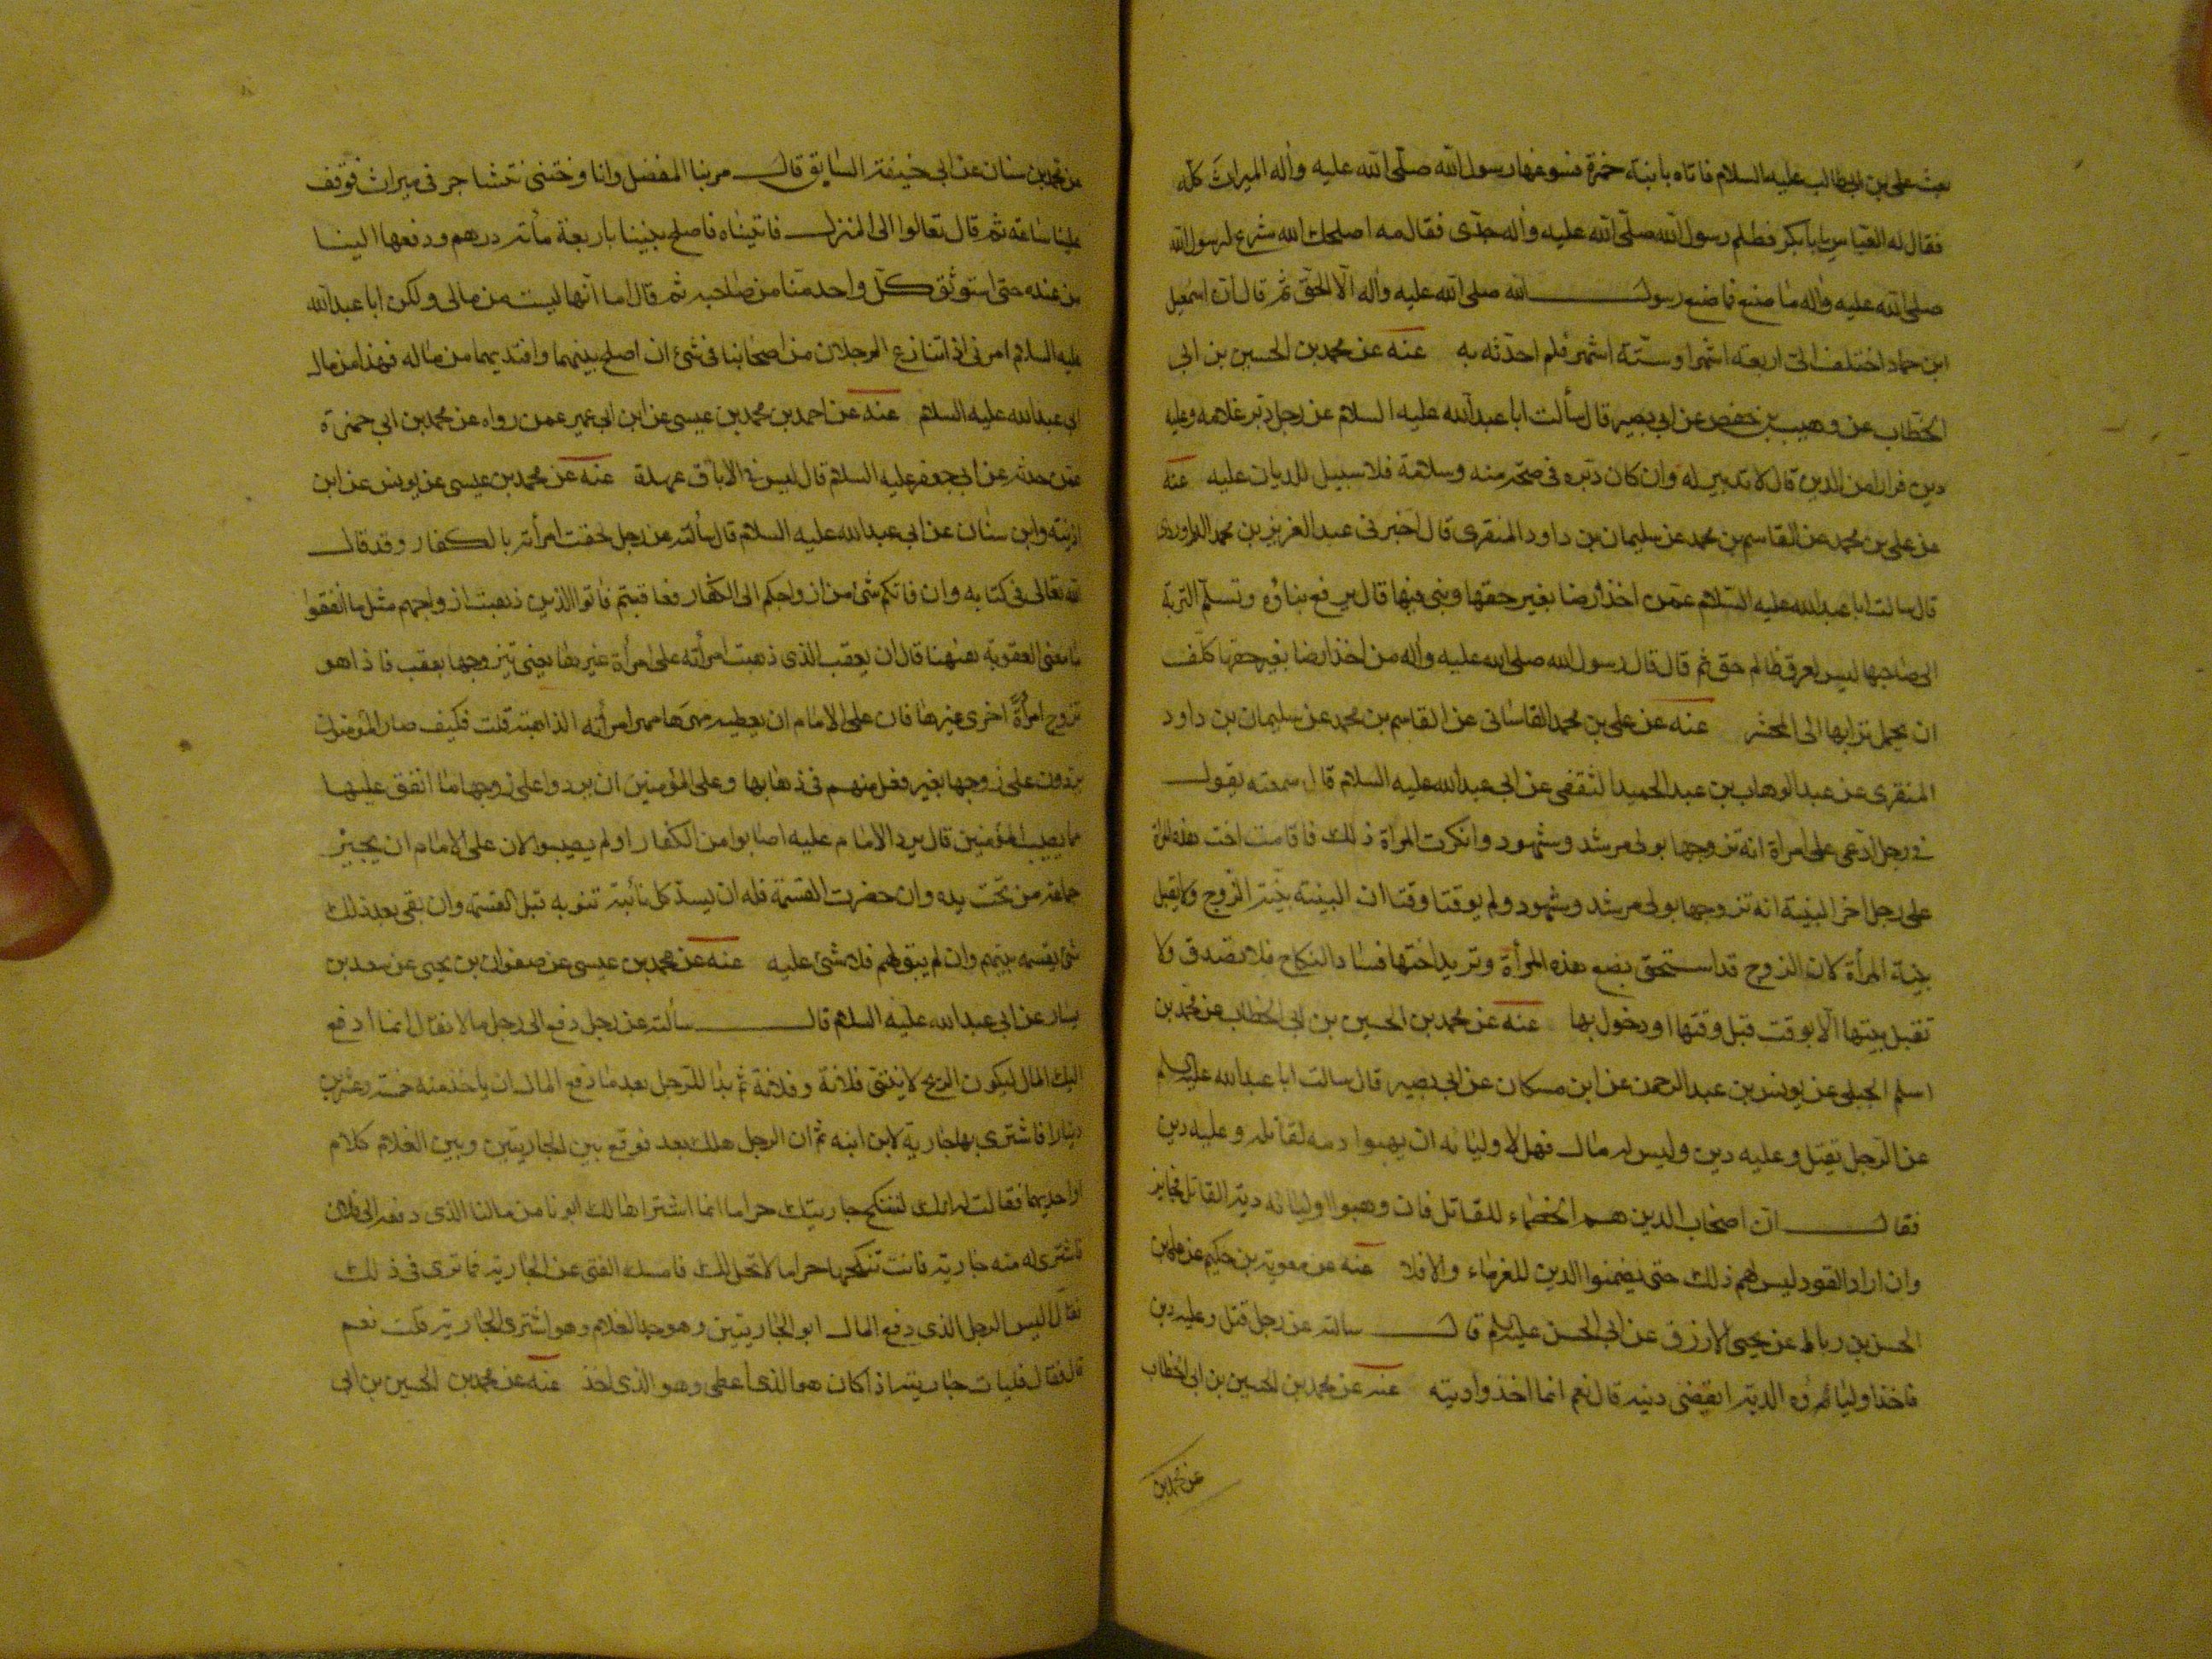 بعث على بن ابى طالب عليه السلام فاتاه بابنة حمزة فسوغها رسول الله صلى الله عليه واله الميراث كله
فقال له العباس يا ابا بكر فظلم رسول الله صلى الله عليه واله جدى فقال مه اصلحك الله شرع لرسول الله
صلى الله عليه واله ما صنع فما صنع رسول الله صلى الله عليه واله الا الحق ثم قال ان اسمعيل
ابن حماد اختلف الى اربعة اشهر او ستة اشهر فلم احدثه به عنه عن محمد بن الحسين بن ابى
الخطاب عن وهيب بن حفص عن ابى بصير قال سألت ابا عبد الله عليه السلام عن رجل دبر غلامه وعليه
دين فرارا من الدين قال لا تدبير له وان كان دبره فى صحة منه وسلامة فلا سبيل للديان عليه عنه
عن على بن محمد عن القاسم بن محمد عن سليمان بن داود المنقرى قال اخبرنى عبد العزيز بن محمد الدراوردى
قال سالت ابا عبد الله عليه السلام عمن اخذ ارضا بغير حقها وبنى فيها قال يرفع بناؤه وتسلم التربة
الى صاحبها ليس لعرق ظالم حق ثم قال قال رسول الله صلى الله عليه واله من اخذ ارضا بغير حقها كلف
ان يحمل ترابها الى المحشر عنه عن على بن محمد القاسانى عن القاسم بن محمد عن سليمان بن داود
المنقرى عن عبد الوهاب بن عبد الحميد الثقفى عن ابى عبد الله عليه السلام قال سمعته يقول
فى رجل ادعى على امراة انه تزوجها بولى مرشد وشهود وانكرت المراة ذلك فاقامت اخت هذه المراة
على رجل اخر البينة انه تزوجها بولى مرشد وشهود ولم يوقتا وقتا ان البينة بينة الزوج ولا يقبل
بينة المرأة لان الزوج قد استحق بضع هذه المرأة وتريد اختها فساد النكاح فلا تصدق ولا
تقبل بينتها الا بوقت قبل وقتها او دخول بها عنه عن محمد بن الحسين بن ابى الخطاب عن محمد بن
اسلم الجبلى عن يونس بن عبد الرحمن عن ابن مسكان عن ابى بصير قال سالت ابا عبد الله عليه السلام
عن الرجل يقتل وعليه دين وليس له مال فهل لاوليائه ان يهبوا دمه لقاتله وعليه دين
فقال ان اصحاب الدين هم الخصماء للقاتل فان وهبوا اوليائه دية القاتل فجايز
وان اراد القود ليس لهم ذلك حتى يضمنوا الدين للغرماء والا فلا عنه عن معوية بن حكيم عن على بن
الحسن بن رباط عن يحيى الازرق عن ابى الحسن عليه السلام قال سالته عن رجل قتل وعليه دين
فاخذ اوليائه الدية ايقضى دينه قال نعم انما اخذوا ديته عنه عن محمد بن الحسين بن ابى الخطاب
عن محمد بن
عن محمد بن سنان عن ابى حنيفة السايق قال مر بنا المفضل وانا وختنى نتشاجر فى ميراث فوقف
علينا ساعة ثم قال تعالوا الى المنزل فاتيناه فاصلح بيننا باربعة مأئة درهم ودفعها الينا
من عنده حتى استوثق كل واحد منا من صاحبه ثم قال اما انها ليست من مالى ولكن ابا عبد الله
عليه السلام امرنى اذا تنازع الرجلان من اصحابنا فى شئ ان اصلح بينهما وافتديهما من ماله فهذا من مال
ابى عبد الله عليه السلام عنه عن احمد بن محمد بن عيسى عن ابن ابى عمير عمن رواه عن محمد بن ابى حمزة
عمن حدثه عن ابى جعفر عليه السلام قال ليس فى الاباق عهدة عنه عن محمد بن عيسى عن يونس عن ابن
اذينة وابن سنان عن ابى عبد الله عليه السلام قال سألته عن رجل لحقت امرأته بالكفار وقد قال
الله تعالى فى كتابه وان فاتكم شئ من ازواجكم الى الكفار فعاقبتم فاتوا الذين ذهبت ازواجهم مثل ما انفقوا
ما معنى العقوبة ههنا قال ان يعقب الذى ذهبت امرأته على امرأة غيرها يعنى تزوجها بعقب فاذا هو
تزوج امرأة اخرى غيرها فان على الامام ان يعطيه مهرها مهر امرأته الذاهبة قلت فكيف صار المؤمنون
يردون على زوجها بغير فعل منهم فى ذهابها وعلى المؤمنين ان يردوا على زوجها ما انفق عليها
مما يصيب المؤمنين قال يرد الامام عليه اصابوا من الكفار او لم يصيبوا لان على الامام ان يجيز
جماعة من تحت يده وان حضرت القسمة فله ان يسد كل نائبة تنوبه قبل القسمة وان بقى بعد ذلك
شئ يقسمه بينهم وان لم يبق لهم فلا شئ عليه عنه عن محمد بن عيسى عن صفوان بن يحيى عن سعد بن
يسار عن ابى عبد الله عليه السلام قال سألته عن رجل دفع الى رجل مالا فقال انما ادفع
اليك المال ليكون الربح لابنتى فلانة وفلانة ثم بدا للرجل بعد ما دفع المال ان ياخذ منه خمسة وعشرين
دينارا فاشترى بها جارية لابن ابنه ثم ان الرجل هلك بعد فوقع بين الجاريتين وبين الغلام كلام
او احديهما فقالت له انك لتنكح جاريتك حراما انما اشتراها لك ابونا من مالنا الذى دفعه الى فلان
فاشترى له منه جارية فانت تنكحها حراما لا تحل لك فامسك الفتى عن الجارية فما ترى فى ذلك
فقال اليس الرجل الذى دفع المال ابو الجاريتين وهو جد الغلام وهو اشترى الجارية قلت نعم
قال فقال فليات جاريته اذا كان هو الذى اعطى وهو الذى اخذ عنه عن محمد بن الحسين بن ابى